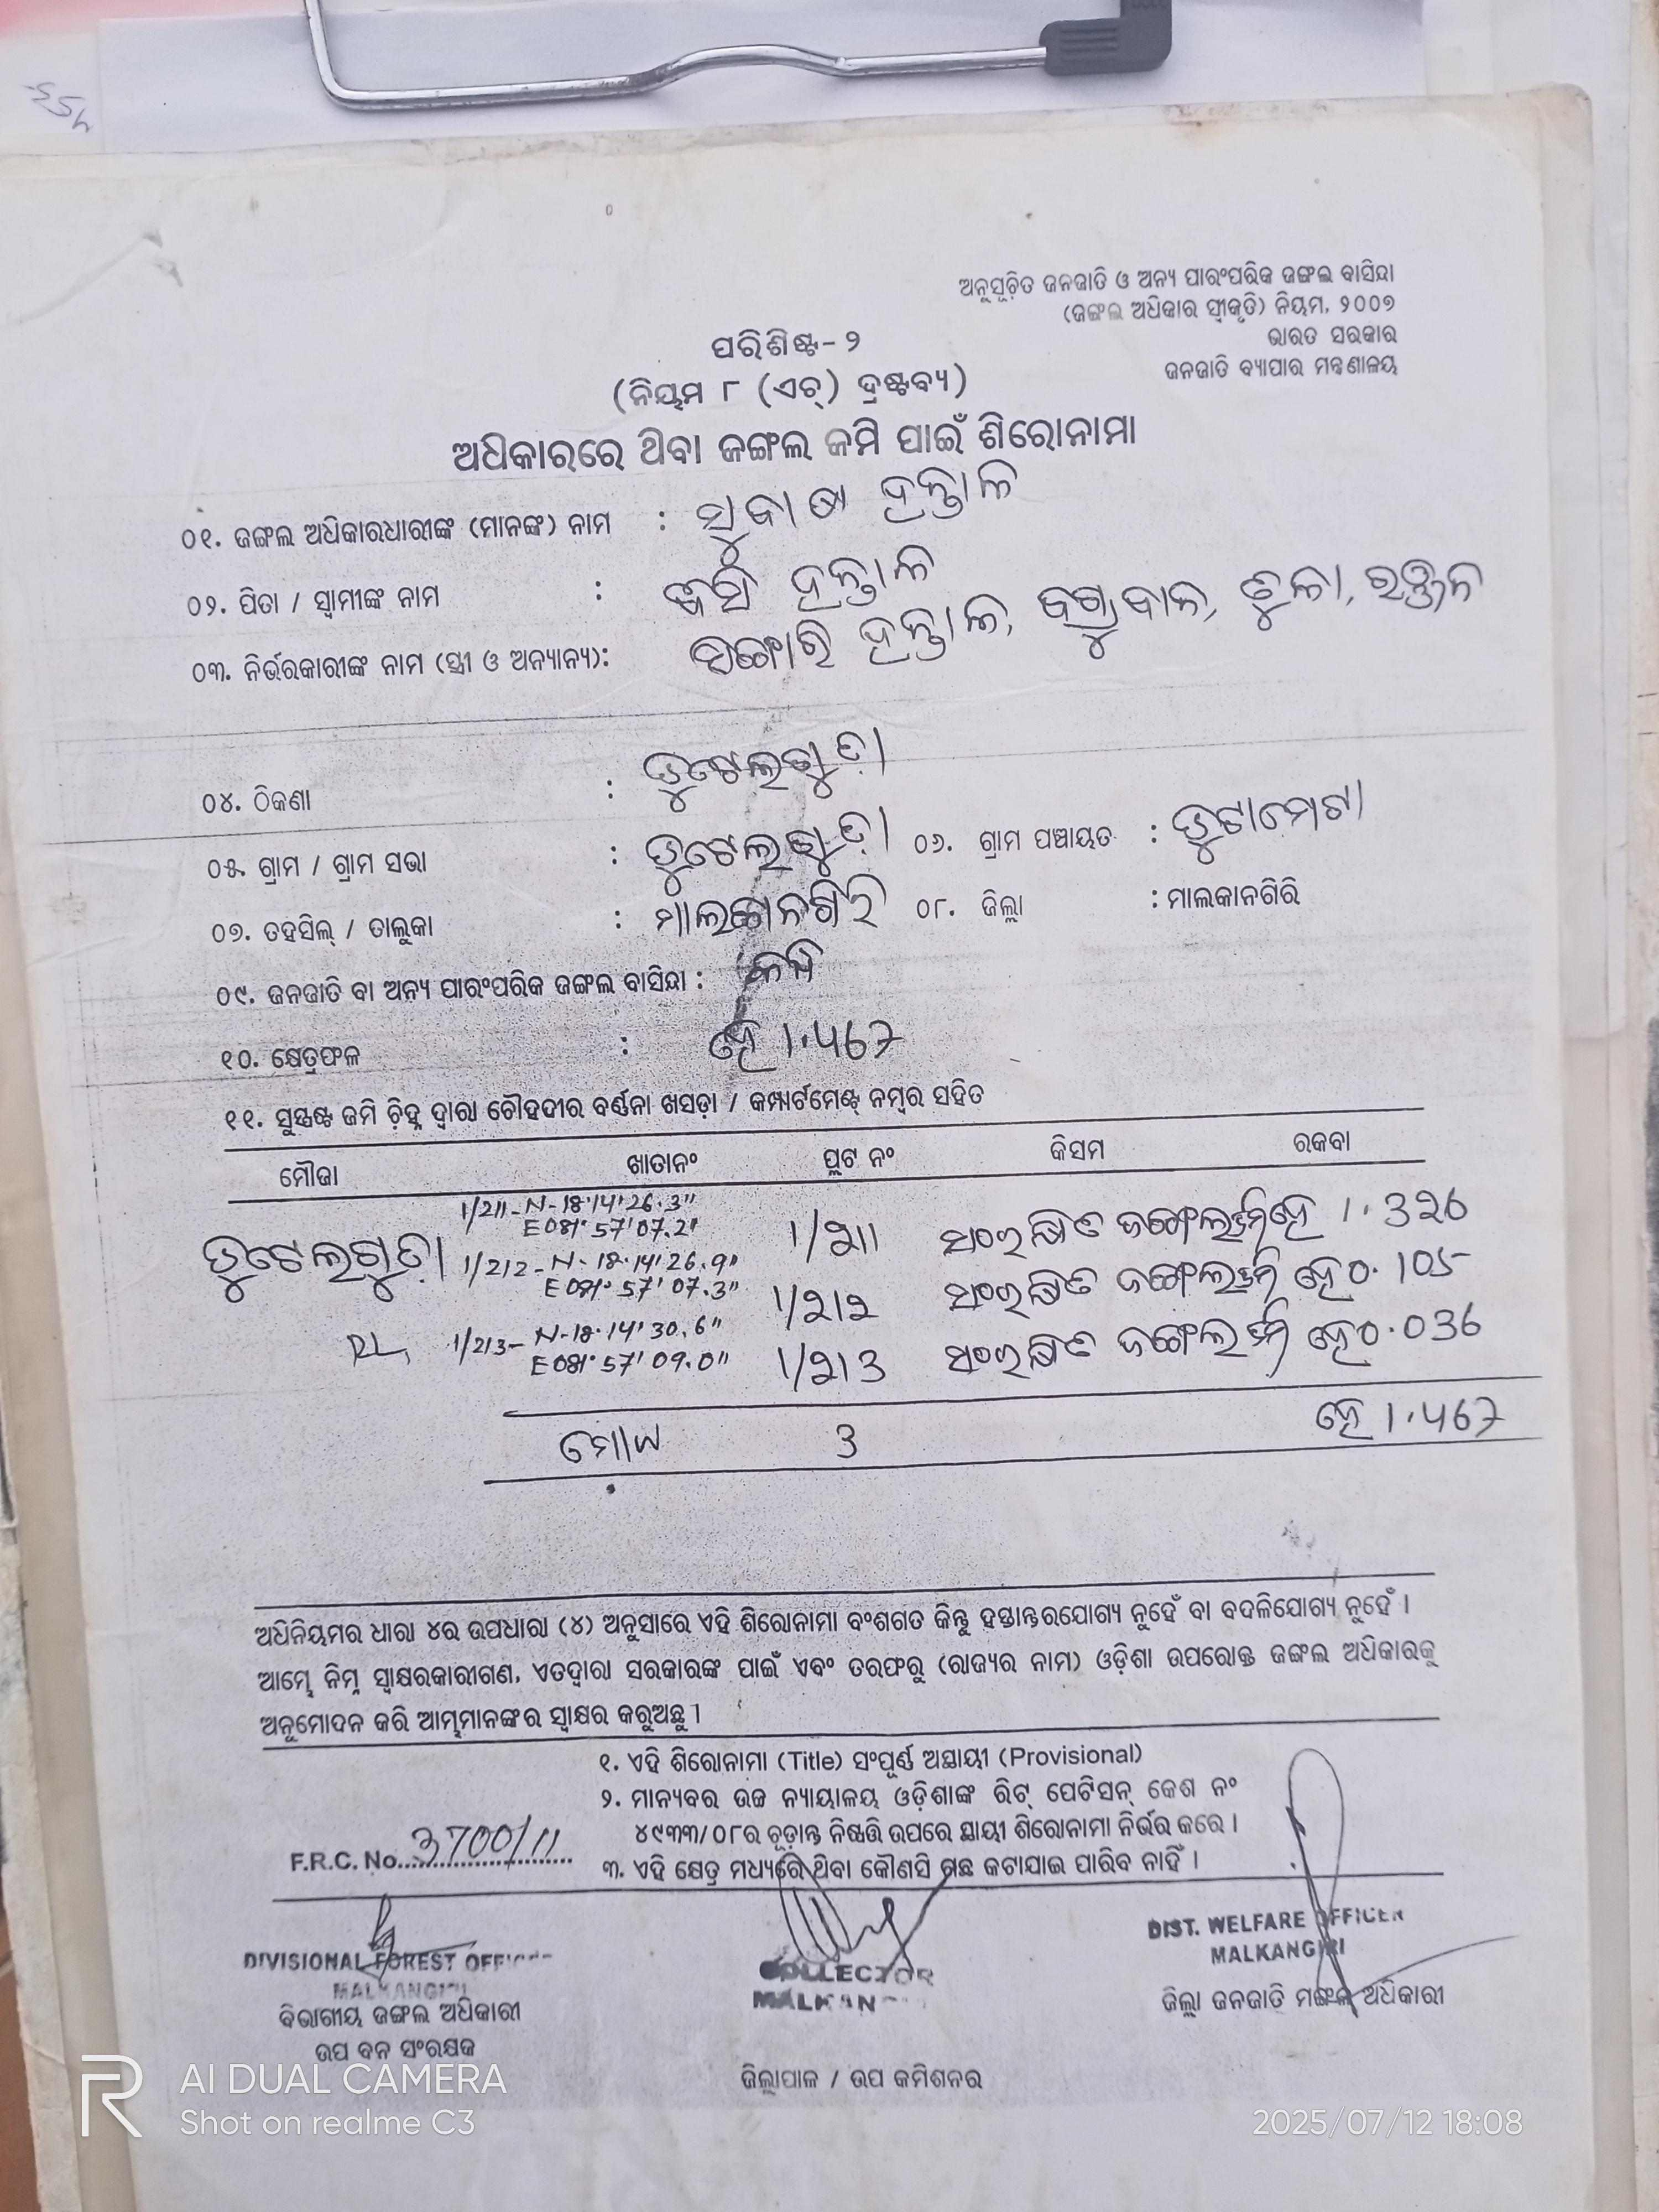 ଅନୁସୂଚିତ ଜନଜାତି ଓ ଅନ୍ୟ ପାରଂପରିକ ଜଙ୍ଗଲ ବାସିନ୍ଦା
(ଜଙ୍ଗଲ ଅଧିକାର ସ୍ୱୀକୃତି) ନିୟମ, ୨୦୦୭
ଭାରତ ସରକାର
ଜନଜାତି ବ୍ୟାପାର ମନ୍ତ୍ରଣାଳୟ
ପରିଶିଷ୍ଟ- ୨
(ନିୟମ ୮ (ଏଚ୍) ଦ୍ରଷ୍ଟବ୍ୟ)
ଅଧିକାରରେ ଥିବା ଜଙ୍ଗଲ ଜମି ପାଇଁ ଶିରୋନାମା
୦୧. ଜଙ୍ଗଲ ଅଧିକାରଧାରୀଙ୍କ (ମାନଙ୍କ) ନାମ : ହନ୍ତାଳ
୦୨. ପିତା / ସ୍ୱାମୀଙ୍କ ନାମ : ହନ୍ତାଳ
୦୩. ନିର୍ଭରକାରୀଙ୍କ ନାମ (ସ୍ତ୍ରୀ ଓ ଅନ୍ୟାନ୍ୟ): ହନ୍ତାଳ,
୦୪. ଠିକଣା : ଭୁଟେଲଗୁଡ଼ା
୦୫. ଗ୍ରାମ / ଗ୍ରାମ ସଭା : ଭୁଟେଲଗୁଡ଼ା ୦୬. ଗ୍ରାମ ପଞ୍ଚାୟତ :
୦୭. ତହସିଲ୍ / ତାଲୁକା : ମାଲକାନଗିରି ୦୮. ଜିଲ୍ଲା : ମାଲକାନଗିରି
୦୯. ଜନଜାତି ବା ଅନ୍ୟ ପାରଂପରିକ ଜଙ୍ଗଲ ବାସିନ୍ଦା :
୧୦. କ୍ଷେତ୍ରଫଳ : ହେ 1.467
୧୧. ସୁସ୍ପଷ୍ଟ ଜମି ଚିହ୍ନ ଦ୍ୱାରା ଚୌହଦୀର ବର୍ଣ୍ଣନା ଖସଡ଼ା / କମ୍ପାର୍ଟମେଣ୍ଟ ନମ୍ବର ସହିତ
ମୌଜା ଖାତାନଂ ପ୍ଲଟ ନଂ କିସମ ରକବା
1/211- N-18°14'26.3"
E081°57'07.2" 1/211 ସଂରକ୍ଷିତ ଜଙ୍ଗଲ ଜମି ହେ 1.326
ଭୁଟେଲଗୁଡ଼ା 1/212- N-18°14'26.9"
E081°57'07.3" 1/212 ସଂରକ୍ଷିତ ଜଙ୍ଗଲ ଜମି ହେ 0.105
1/213- N-18°14'30.6"
E081°57'09.0" 1/213 ସଂରକ୍ଷିତ ଜଙ୍ଗଲ ଜମି ହେ 0.036
ମୋଟ 3 ହେ 1.467
ଅଧିନିୟମର ଧାରା ୪ର ଉପଧାରା (୪) ଅନୁସାରେ ଏହି ଶିରୋନାମା ବଂଶଗତ କିନ୍ତୁ ହସ୍ତାନ୍ତରଯୋଗ୍ୟ ନୁହେଁ ବା ବଦଳିଯୋଗ୍ୟ ନୁହେଁ ।
ଆମ୍ଭେ ନିମ୍ନ ସ୍ୱାକ୍ଷରକାରୀଗଣ, ଏତଦ୍ୱାରା ସରକାରଙ୍କ ପାଇଁ ଏବଂ ତରଫରୁ (ରାଜ୍ୟର ନାମ) ଓଡ଼ିଶା ଉପରୋକ୍ତ ଜଙ୍ଗଲ ଅଧିକାରକୁ
ଅନୁମୋଦନ କରି ଆମ୍ଭମାନଙ୍କର ସ୍ୱାକ୍ଷର କରୁଅଛୁ ।
୧. ଏହି ଶିରୋନାମା (Title) ସଂପୂର୍ଣ୍ଣ ଅସ୍ଥାୟୀ (Provisional)
୨. ମାନ୍ୟବର ଉଚ୍ଚ ନ୍ୟାୟାଳୟ ଓଡ଼ିଶାଙ୍କ ରିଟ୍ ପେଟିସନ୍ କେଶ ନଂ
୪୯୩୩/୦୮ର ଚୂଡ଼ାନ୍ତ ନିଷ୍ପତ୍ତି ଉପରେ ସ୍ଥାୟୀ ଶିରୋନାମା ନିର୍ଭର କରେ ।
F.R.C. No. 3700/11
୩. ଏହି କ୍ଷେତ୍ର ମଧ୍ୟରେ ଥିବା କୌଣସି ଗଛ କଟାଯାଇ ପାରିବ ନାହିଁ ।
DIVISIONAL FOREST OFFICER
MALKANGIRI
ବିଭାଗୀୟ ଜଙ୍ଗଲ ଅଧିକାରୀ
ଉପ ବନ ସଂରକ୍ଷକ
COLLECTOR
MALKAN
ଜିଲ୍ଲାପାଳ / ଉପ କମିଶନର
DIST. WELFARE OFFICER
MALKANGIRI
ଜିଲ୍ଲା ଜନଜାତି ମଙ୍ଗଳ ଅଧିକାରୀ
AI DUAL CAMERA
Shot on realme C3
2025/07/12 18:08